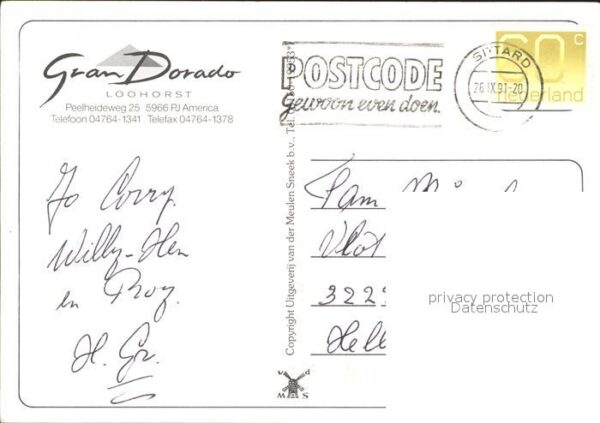 Gran Dorado
LOOHORST
Peelheideweg 25 5966 PJ America
Telefoon 04764-1341 Telefax 04764-1378
POSTCODE
gewoon even doen.
SITTARD
26.IX.91-20
60 c
nederland
Copyright Uitgeverij van der Meulen Sneek b.v., Tel.
Jo Corry.
Willy-Hen
en Roy.
H. Gr.
Fam
Vlot
322
Hel
privacy protection
Datenschutz
v d
M S